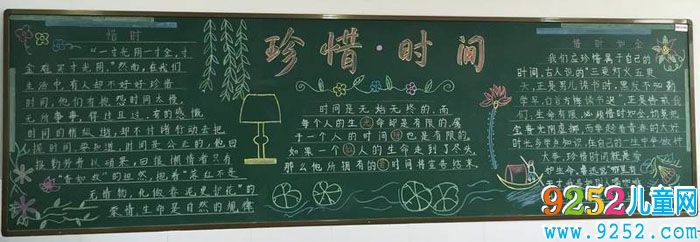 珍惜·时间
惜时
“一寸光阴一寸金,寸
金难买寸光阴。”然而,在我们
生活中,有人却不好好珍惜
时间,他们有抱怨时间太慢,
无所事事,得过且过,有的感慨
时间的稍纵逝,却不付诸行动去把
握时间要知道,时间是公正的,他回
报勤劳者以硕果,回报懒惰者只有
的坦然,抱着“落红不是
无情物,化做春泥更护花”的
豪情,生命是自然的规律
时间是无始无终的,而
每个人的生命却是有限的,属
于一个人的时间也是有限的,
如果一个人的生命走到了尽头,
那么他所拥有的时间将宣告结束
惜时如金
我们应珍惜属于自己的
时间,古人说的“三更灯火五更
天,正是男儿读书时,黑发不知勤
学早,白首方悔读书迟”,正是告诫我
们,生命有限,必须惜时如金,切莫把
宝贵光阴虚掷,而要趁着青春的大好
时光多学点知识,在自己的一生中争做
大事,珍惜时间就是珍
惜生命,鲁迅说
9252儿童网
www.9252.com